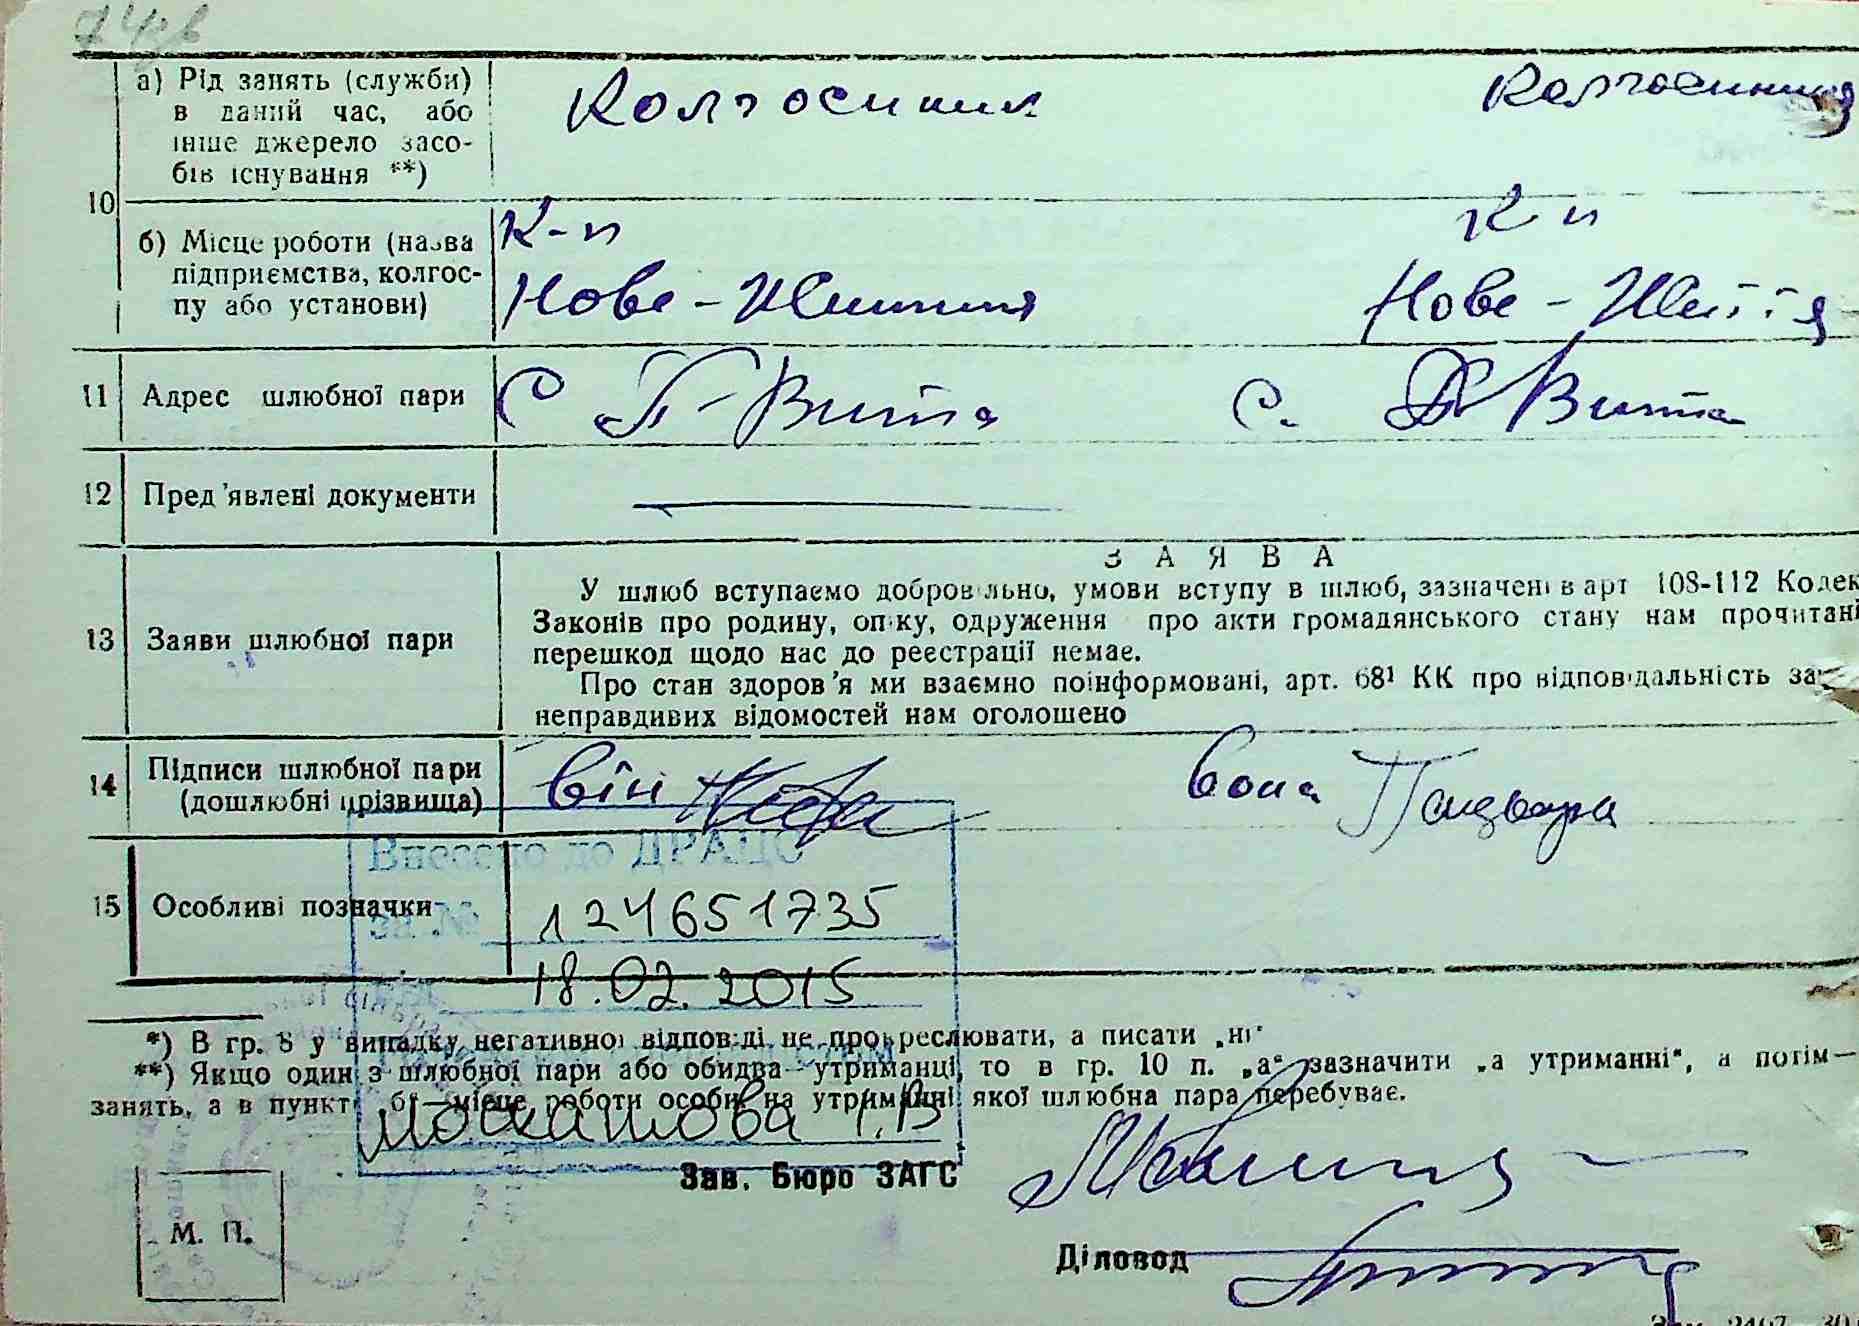 а) Рід занять (служби) в даний час, або інше джерело засобів існування **)
Колгосник
Колгоспниця
10
б) Місце роботи (назва підприємства, колгоспу або установи)
К-п
К п
Нове-Життя
Нове-Життя
11 Адрес шлюбної пари
С П-Вита
с. П Вита
12 Пред'явлені документи
ЗАЯВА
13 Заяви шлюбної пари
У шлюб вступаємо добровільно, умови вступу в шлюб, зазначені в арт 108-112 Кодек
Законів про родину, опіку, одруження про акти громадянського стану нам прочитані
перешкод щодо нас до реєстрації немає.
Про стан здоров'я ми взаємно поінформовані, арт. 68¹ КК про відповідальність за
неправдивих відомостей нам оголошено
14 Підписи шлюбної пари
(дошлюбні прізвища)
Він
Вона
Внесено до ДРАЦС
15 Особливі позначки
за №
124651735
18.02.2015
*) В гр. 8 у випадку негативної відповіді не прокреслювати, а писати „ні"
**) Якщо один з шлюбної пари або обидва утриманці, то в гр. 10 п. „а" зазначити „а утриманні", а потім—
занять, а в пункті б"—місце роботи особи, на утриманні якої шлюбна пара перебуває.
Зав. Бюро ЗАГС
М. П.
Діловод